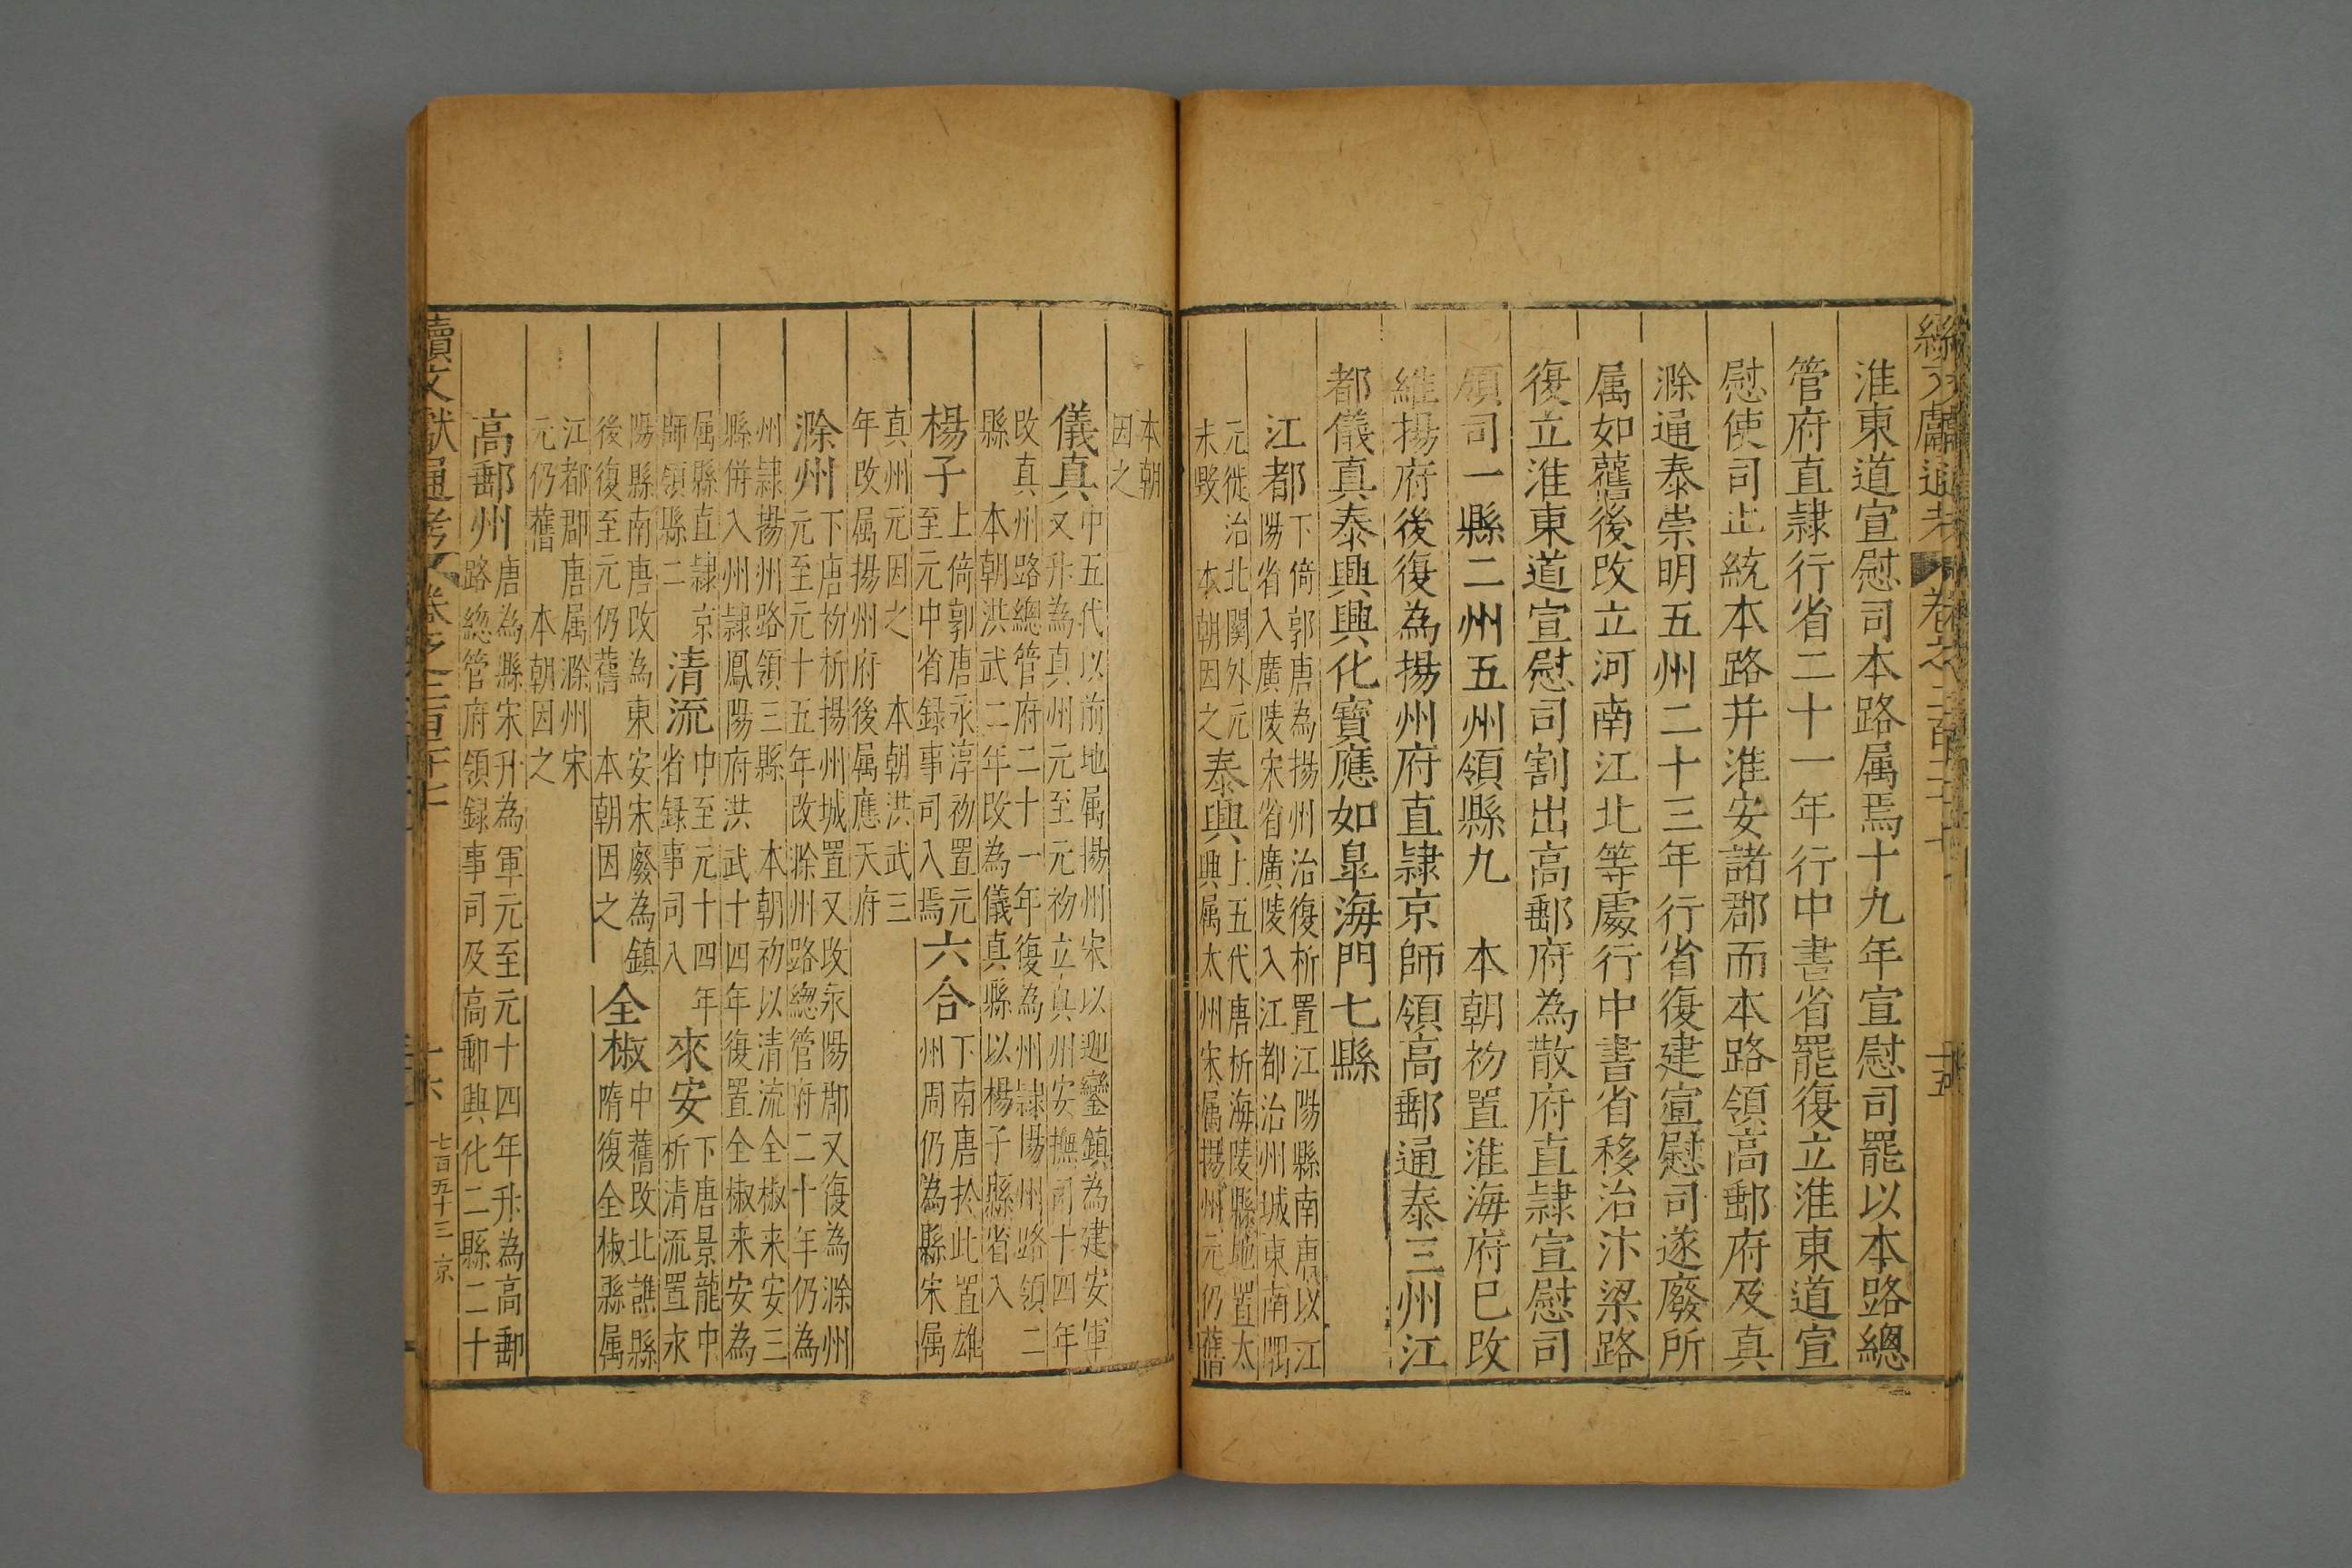 淮東道宣慰司本路属焉十九年宣慰司罷以本路總
管府直隷行省二十一年行中書省罷復立淮東道宣
慰使司止統本路并淮安諸郡而本路領高郵府及真
滁通泰崇明五州二十三年行省復建宣慰司遂廢所
属如舊後改立河南江北等處行中書省移治汴梁路
復立淮東道宣慰司割出高郵府為散府直隷宣慰司
領司一縣二州五州領縣九 本朝初置淮海府已改
維揚府後復為揚州府直隷京師領高郵通泰三州江
都儀真泰興興化寶應如皐海門七縣
江都
下倚郭唐為揚州治復析置江陽縣南唐以江
陽省入廣陵宋省廣陵入江都治州城東南隅
元徙治北関外元
末毀 本朝因之
泰興
上五代唐析海陵縣地置太
興属太州宋属揚州元仍舊
本朝
因之
儀真
中五代以前地属揚州宋以迎鑾鎮為建安軍
又升為真州元至元初立真州安撫司十四年
改真州路總管府二十一年復為州隷揚州路領二
縣 本朝洪武二年改為儀真縣以楊子縣省入
楊子
上倚郭唐永淳初置元
至元中省録事司入焉
六合
下南唐於此置雄
州周仍為縣宋属
真州元因之 本朝洪武三
年改属揚州府後属應天府
滁州
下唐初析揚州城置又改永陽郡又復為滁州
元至元十五年改滁州路總管府二十年仍為
州隷揚州路領三縣 本朝初以清流全椒来安三
縣併入州隷鳳陽府洪武十四年復置全椒来安為
属縣直隷京
師領縣二
清流
中至元十四年
省録事司入
來安
下唐景龍中
析清流置永
陽縣南唐改為東安宋廢為鎮
後復至元仍舊 本朝因之
全椒
中舊改北譙縣
隋復全椒縣属
江都郡唐属滁州宋
元仍舊 本朝因之
高郵州
唐為縣宋升為軍元至元十四年升為高郵
路總管府領録事司及高郵興化二縣二十
續文獻通考 卷之二百二十七
十六
七百五十三 京